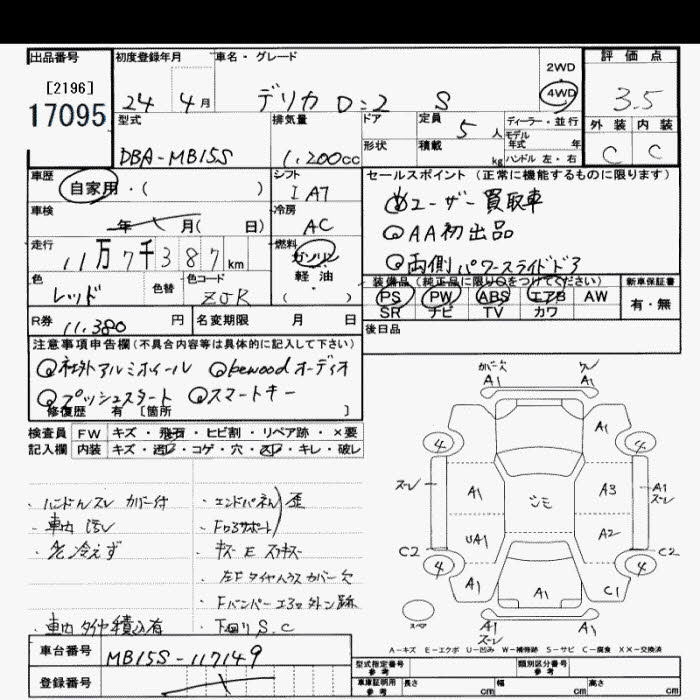 出品番号 初度登録年月 車名・グレード 評価点
[2196] 2WD
17095 24 4月 デリカ D:2 S 4WD 3.5
型式 排気量 ドア 定員 5人 ディーラー・並行 外装 内装
モデル年式 年
DBA-MB15S 1,200cc 形状 積載 kg ハンドル 左・右 C C
車歴 シフト セールスポイント(正常に機能するものに限ります)
自家用・( ) IA7 ユーザー買取車
車検 冷房
年 月( 日) AC AA初出品
走行 燃料
11万7千387km ガソリン 両側パワースライドドア
色 色替 色コード 軽・油 装備品(純正品に限り○をつけてください) 新車保証書
レッド ZJR ( ) PS PW ABS エアB AW 有・無
SR ナビ TV カワ
R券 11,380円 名変期限 月 日 後日品
注意事項申告欄(不具合内容等は具体的に記入して下さい)
社外アルミホイール kewoodオーディオ
プッシュスタート スマートキー
修復歴 有 [箇所 ]
検査員 FW キズ・飛石・ヒビ割・リペア跡・×要
記入欄 内装 キズ・汚レ・コゲ・穴・スレ・キレ・破レ
カバー欠 A1 A1
4 A1 4
・ハンドルスレ カバー付 ・エンドパネル 歪
スレ A1 シミ A3 A1 スレ
・車内 汚レ ・Fロアサポート
UA1 A2
・冷えず ・キズ E スリキズ
C2 C2
4 4
・左Fタイヤハウス カバー欠
A1 A1 C1
・Fバンパー エアロ外シ跡
A1 スレ A1
・車内 タイヤ積込有 ・下回り S.C
A-キズ E-エクボ U-凹み W-補修跡 S-サビ C-腐食 XX-交換済
車台番号 MB15S-117149
型式指定番号 参考 類別区分番号 参考
登録番号 車庫証明用 参考 長さ cm 幅 cm 高さ cm